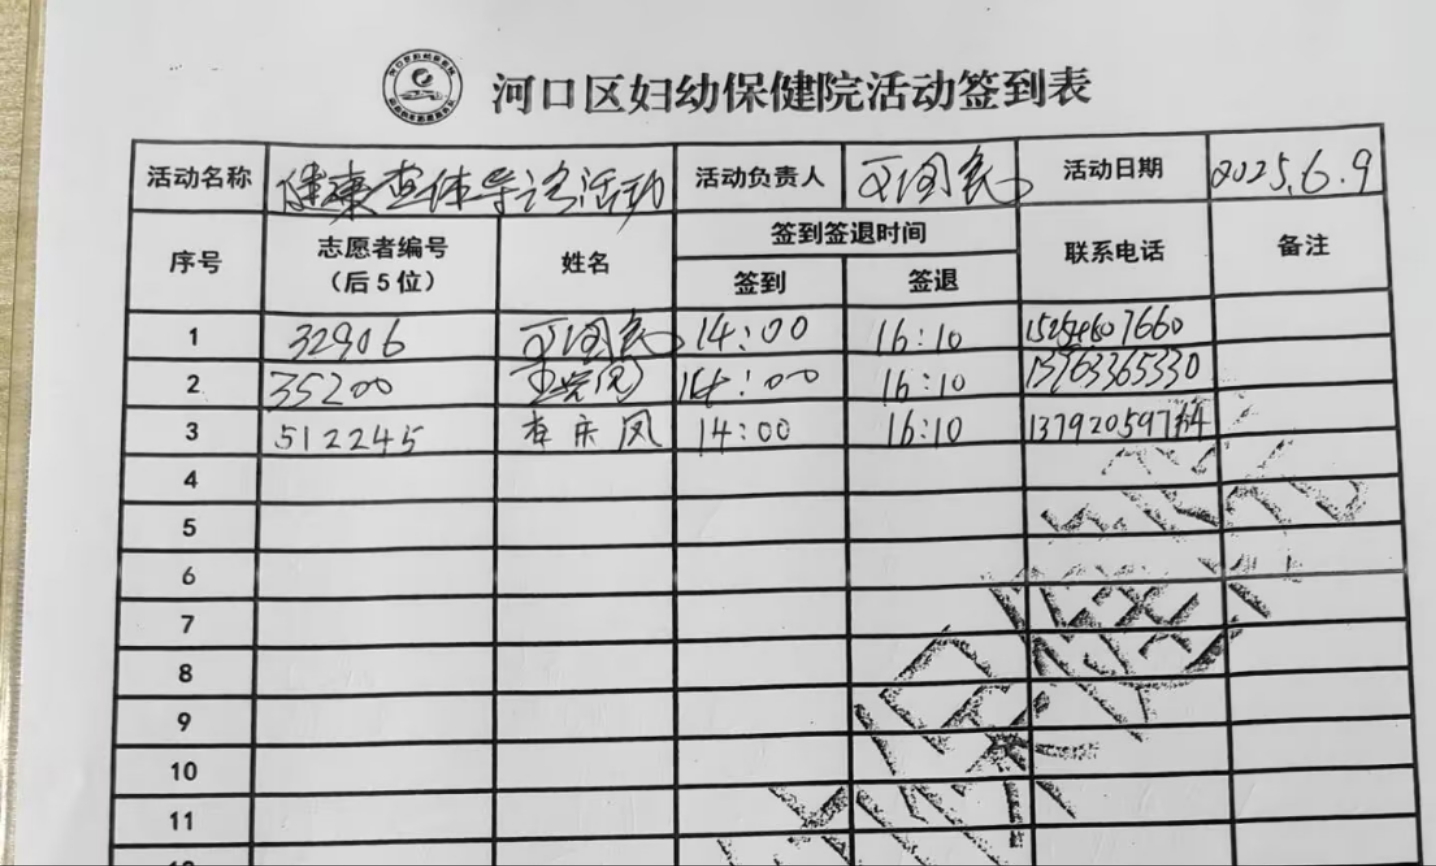 河口区妇幼保健院活动签到表
活动名称 健康查体导诊活动 活动负责人 活动日期 2025.6.9
序号 志愿者编号（后5位） 姓名 签到签退时间 联系电话 备注
签到 签退
1 32906 14:00 16:10
2 35200 14:00 16:10 13963365330
3 512245 李庆凤 14:00 16:10
4
5
6
7
8
9
10
11